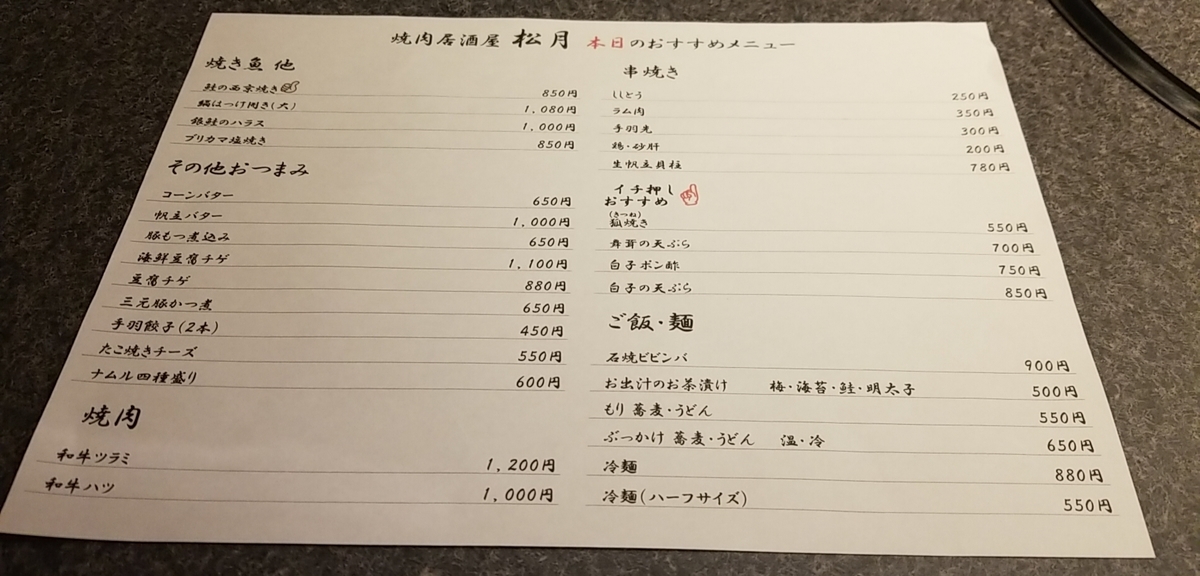 焼肉居酒屋 松月 本日のおすすめメニュー
焼き魚 他
鮭の西京焼き 850円
縞ほっけ開き(大) 1,080円
銀鮭のハラス 1,000円
ブリカマ塩焼き 850円
その他おつまみ
コーンバター 650円
帆立バター 1,000円
豚もつ煮込み 650円
海鮮豆腐チゲ 1,100円
豆腐チゲ 880円
三元豚かつ煮 650円
手羽餃子(2本) 450円
たこ焼きチーズ 550円
ナムル四種盛り 600円
焼肉
和牛ツラミ 1,200円
和牛ハツ 1,000円
串焼き
ししとう 250円
ラム肉 350円
手羽先 300円
鶏・砂肝 200円
生帆立貝柱 780円
イチ押し
おすすめ
(きつね)
狐焼き 550円
舞茸の天ぷら 700円
白子ポン酢 750円
白子の天ぷら 850円
ご飯・麺
石焼ビビンバ 900円
お出汁のお茶漬け 梅・海苔・鮭・明太子 500円
もり 蕎麦・うどん 550円
ぶっかけ 蕎麦・うどん 温・冷 650円
冷麺 880円
冷麺(ハーフサイズ) 550円